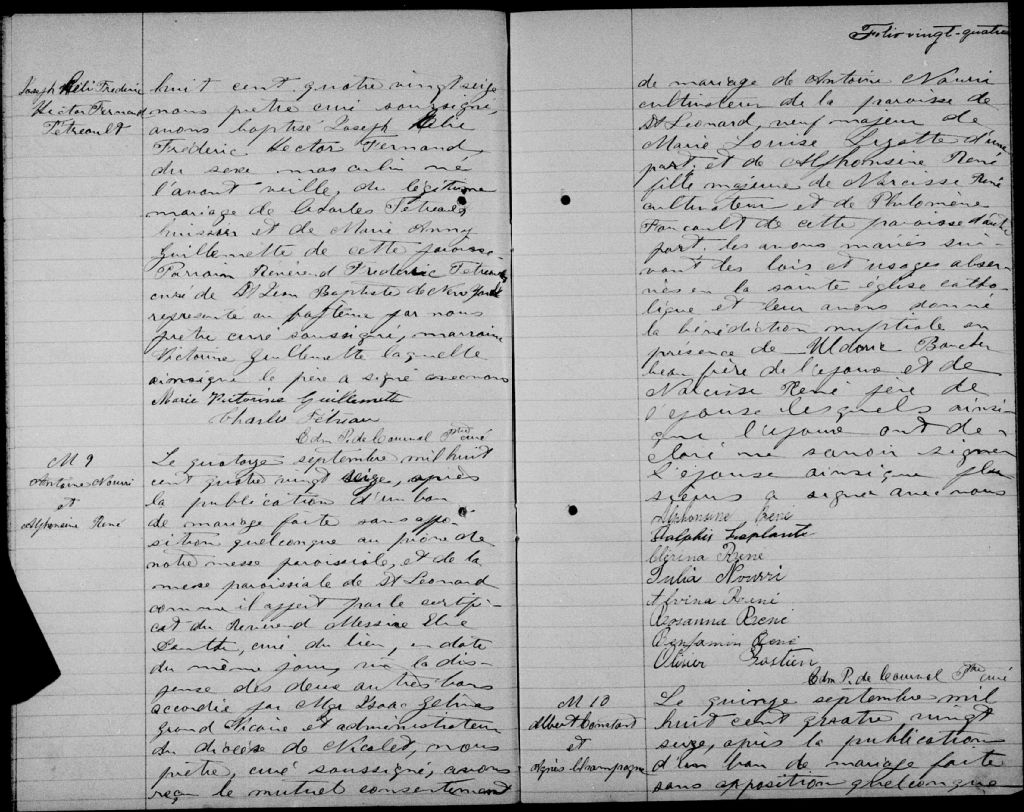 Joseph Hélie Frédéric
Hector Fernand
Tétreault
huit cent quatre vingt seize
nous prêtre curé soussigné,
avons baptisé Joseph Hélie
Frédéric Hector Fernand,
du sexe masculin né
l'avant veille, du légitime
mariage de Charles Tétreau
huissier et de Marie Anny
Guillemette de cette paroisse
Parrain Révérend Frédéric Tétreau
curé de St Jean Baptiste de New York
représenté au baptême par nous
prêtre curé soussigné, marraine
Victorine Guillemette laquelle
ainsique le père a signé avec nous
Marie Victorine Guillemette
Charles Tétreau
Edm P. de Courval Ptre curé
M 9
Antoine Nourri
et
Alphonsine René
Le quatorze septembre mil huit
cent quatre vingt seize, après
la publication d'un ban
de mariage faite sans oppo-
sition quelconque au prône de
notre messe paroissiale, et de la
messe paroissiale de St Léonard
comme il appert par le certifi-
cat du Révérend Messire Elie
curé du lieu, en date
du même jour, vu la dis-
pense des deux autres bans
accordée par Mgr Isaac Gélinas
Grand Vicaire et administrateur
du diocèse de Nicolet, nous
prêtre, curé soussigné, avons
reçu le mutuel consentement
Folio vingt-quatre
de mariage de Antoine Nourri
cultivateur de la paroisse de
St Léonard, veuf majeur de
Marie Louise Lizotte d'une
part, et de Alphonsine René
fille majeure de Narcisse René
cultivateur et de Philomène
Foucault de cette paroisse d'autre
part, les avons mariés sui-
vant les lois et usages obser-
vés en la sainte église catho-
lique et leur avons donné
la bénédiction nuptiale en
présence de Uldoric Boucher
beau frère de l'époux et de
Narcisse René père de
l'épouse lesquels ainsi-
que l'époux ont dé-
claré ne savoir signer
L'épouse ainsique plu
sieurs a signé avec nous
Alphonsine René
Dalphis Laplante
Clérina René
Julia Nourri
Alvina René
Rosanna René
Benjamin René
Olivier Bastien
Edm P. de Courval Ptre curé
M 10
Albert Constant
et
Agnès Champagne
Le quinze septembre mil
huit cent quatre vingt
seize, après la publication
d'un ban de mariage faite
sans opposition quelconque